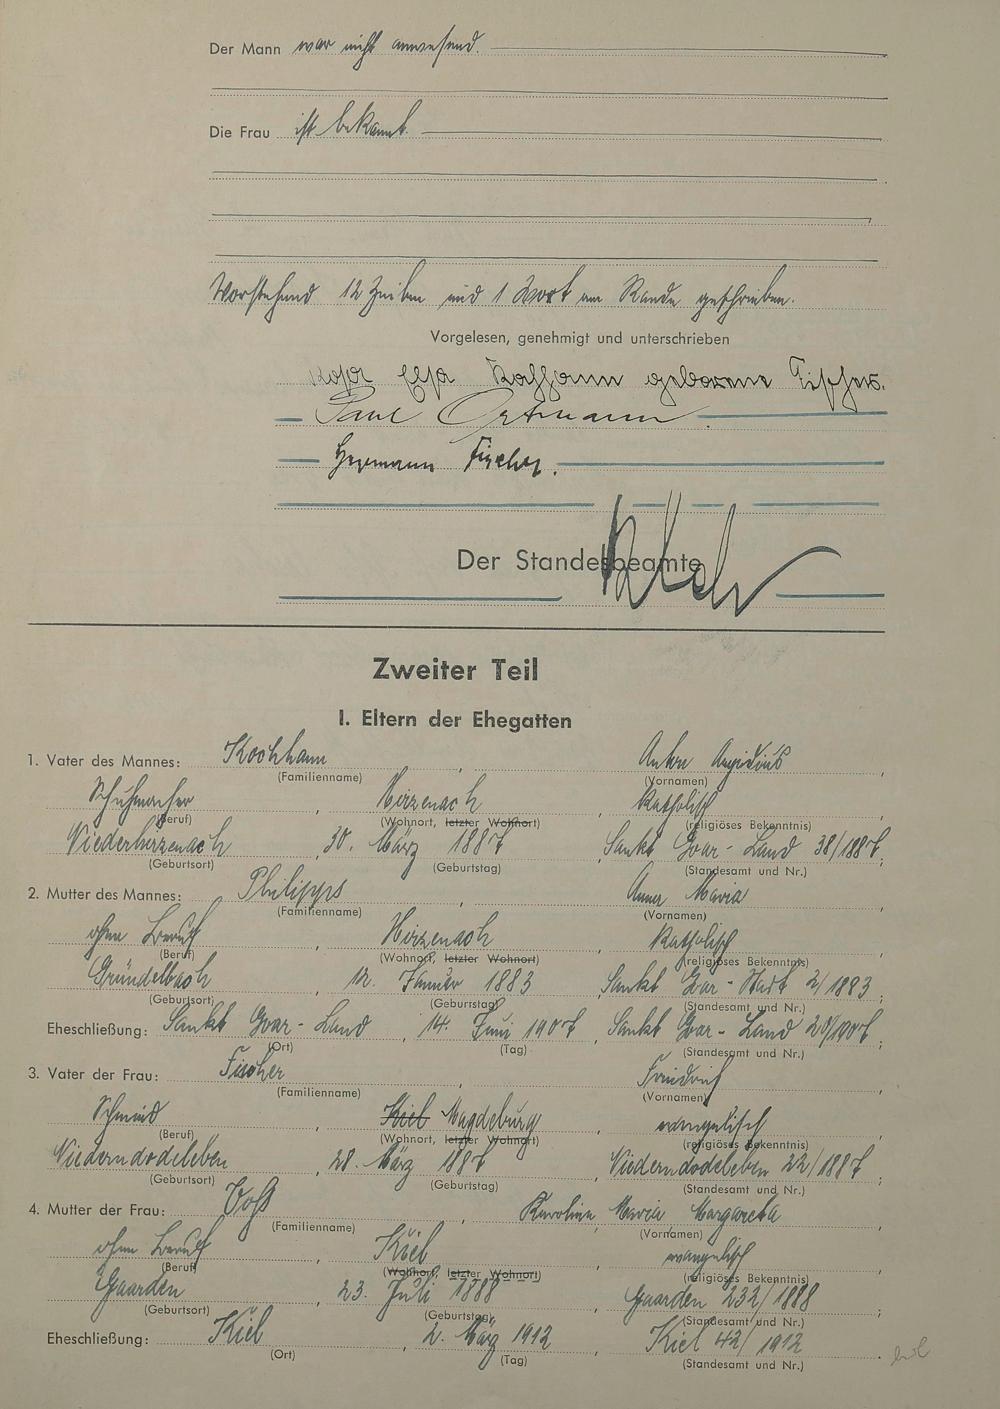 Der Mann war nicht anwesend.
Die Frau ist bekannt.
Vorstehend 12 Zeilen und 1 Wort am Rande geschrieben.
Vorgelesen, genehmigt und unterschrieben
Elsa geborene Fischer.
Paul Ortmann
Hermann Fischer.
Der Standesbeamte
Zweiter Teil
I. Eltern der Ehegatten
1. Vater des Mannes: Kochhann, Anton Aegidius,
(Familienname) (Vornamen)
Schuhmacher, Hirzenach, katholisch
(Beruf) (Wohnort, letzter Wohnort) (religiöses Bekenntnis)
Niederhirzenach, 30. März 1887, Sankt Goar-Land 38/1887;
(Geburtsort) (Geburtstag) (Standesamt und Nr.)
2. Mutter des Mannes: Philipps, Anna Maria,
(Familienname) (Vornamen)
ohne Beruf, Hirzenach, katholisch
(Beruf) (Wohnort, letzter Wohnort) (religiöses Bekenntnis)
Gründelbach, 12. Januar 1883, Sankt Goar-Stadt 2/1883;
(Geburtsort) (Geburtstag) (Standesamt und Nr.)
Eheschließung: Sankt Goar-Land, 14. Juni 1907, Sankt Goar-Land 20/1907;
(Ort) (Tag) (Standesamt und Nr.)
3. Vater der Frau: Fischer, Friedrich,
(Familienname) (Vornamen)
Schmied, Kiel Magdeburg, evangelisch
(Beruf) (Wohnort, letzter Wohnort) (religiöses Bekenntnis)
Niederndodeleben, 28. März 1887, Niederndodeleben 22/1887;
(Geburtsort) (Geburtstag) (Standesamt und Nr.)
4. Mutter der Frau: Voß, Karoline, Maria Margareta,
(Familienname) (Vornamen)
ohne Beruf, Kiel, evangelisch
(Beruf) (Wohnort, letzter Wohnort) (religiöses Bekenntnis)
Gaarden, 23. Juli 1888, Gaarden 232/1888;
(Geburtsort) (Geburtstag) (Standesamt und Nr.)
Eheschließung: Kiel, 2. März 1912, Kiel 42/1912.
(Ort) (Tag) (Standesamt und Nr.)